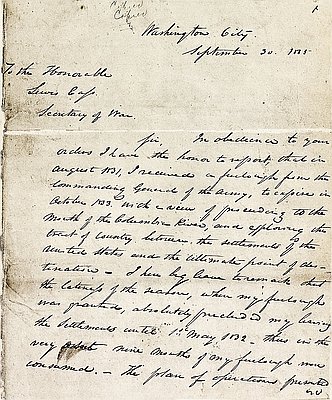 Copied
Copied
Washington City.
September 30. 1835
To the Honorable
Lewis Cass.
Secretary of War.
Sir, In obedience to your
orders I have the honor to report, that in
August 1831, I received a furlough from the
Commanding General of the Army, to expire in
October 1833 with a view of proceeding to the
Mouth of the Columbia River, and exploring the
tract of Country between the settlements of the
United States and the Ultimate point of des-
tination - I here beg leave to remark that
the lateness of the season, when my furlough
was granted, absolutely precluded my leaving
the Settlements until 1st May, 1832. thus in the
very nine Months of my furlough were
consumed. - The plan of operations presented